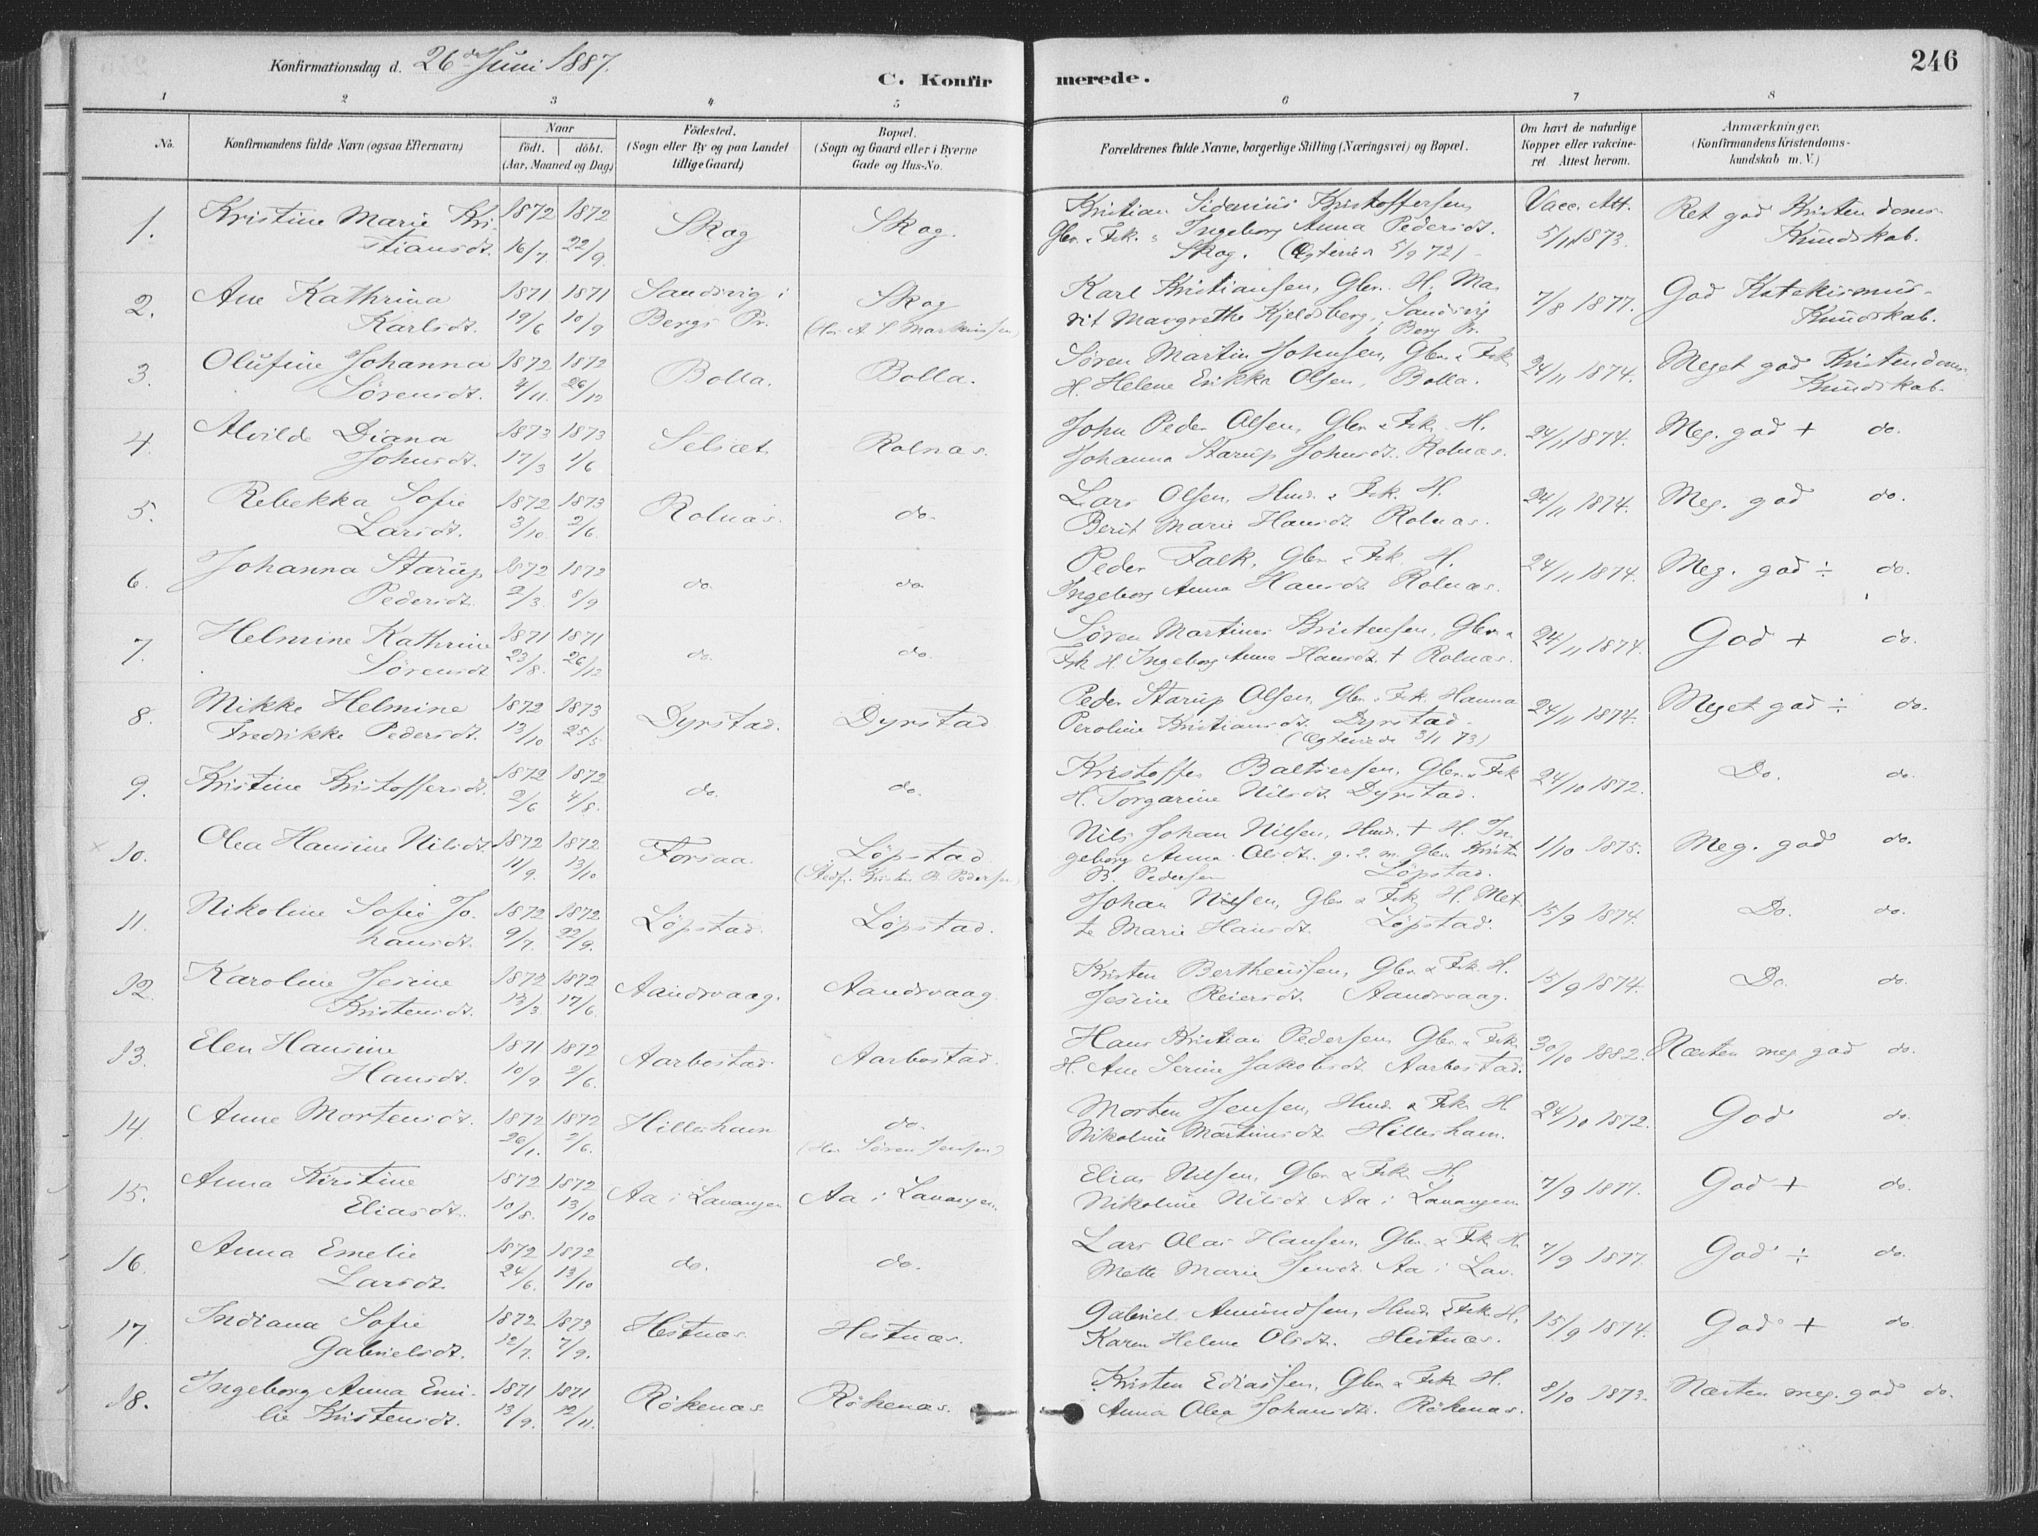 Konfirmationsdag d. 26de Juni 1887.
C. Konfirmerede.
246
1 2 3 4 5 6 7 8
No.
Konfirmandens fulde Navn (ogsaa Efternavn)
Naar
födt. döbt.
(Aar, Maaned og Dag)
Födested.
(Sogn eller By og paa Landet
tillige Gaard)
Bopæl.
(Sogn og Gaard eller i Byerne
Gade og Hus-No.
Forældrenes fulde Navne, borgerlige Stilling (Næringsvei) og Bopæl.
Om havt de naturlige
Kopper eller vakcine-
ret Attest herom.
Anmærkninger.
(Konfirmandens Kristendoms-
kundskab m. V.)
1. Kristine Marie Kri- 1872 1872 Skog Skog. Kristian Sidenius Kristoffersen, Vacc. Att. Ret god Kristendoms-
stiansdt. 16/7 22/9. Gbr. & Fsk. Ingeborg Anna Pedersdt. 5/11 1873. Kundskab.
Skog. (Ægteviede 5/9 72)
2. Ane Kathrina 1871 1871 Sandvig i Skog Karl Kristiansen, Gbr. H. Ma- 7/8 1877. God Katekismus-
Karlsdt. 19/6 10/9 Bergs Pr. rit Margrethe Kjeldsberg, Sandvig Kundskab.
i Berg Pr.
3. Olufine Johanna 1872 1872 Bolla. Bolla. Søren Martin Johnsen, Gbr. & Fsk 24/11 1874. Meget god Kristendoms-
Sørensdt. 4/11. 26/12 H. Helene Erikka Olsen, Bolla. Kundskab.
4. Alvilde Diana 1873 1873 Selsæt Rolnæs. John Peder Olsen, Gbr & Fsk. H. 24/11 1874. Meg. god + do.
Johnsdt. 17/3 1/6 Johanna Starup Johnsdt. Rolnæs.
5. Rebekka Sofie 1872 1873 Rolnæs. do. Lars Olsen, Hmd. & Fsk. H. 24/11 1874. Meg. god do.
Larsdt. 3/10. 2/6. Berit Marie Hansdt. Rolnæs.
6. Johanna Starup 1872 1872 do. do Peder Falk, Gbr & Fsk. H. 24/11 1874. Meg. god ÷ do.
Pedersdt. 2/3. 8/9 Ingeborg Anna Hansdt Rolnæs.
7. Helmine Kathrine 1871 1871 do. do. Søren Martinus Kristensen, Gbr. & 24/11 1874. God + do.
Sørensdt 23/8. 26/12 Fsk H. Ingeborg Anna Hansdt + Rolnæs.
8. Mikke Helmine 1872 1873 Dyrstad. Dyrstad Peder Starup Olsen, Gbr. & Fsk. Hanna 24/11 1874. Meget god ÷ do.
Fredrikke Pedersdt. 13/10 25/5. Peroline Kristiansdt. Dyrstad.
(Ægteviede 3/1 73)
9. Kristine Kristoffersdt. 1872 1872 do. do. Kristoffer Baltsersen, Gbr. & Fsk 24/10 1872. Do. do.
2/6 4/8. H. Torgarine Nilsdt. Dyrstad.
10. Olea Hansine Nilsdt. 1872 1872 Forsaa. Löpstad. Nils Johan Nilsen, Hmd. + H. In- 1/10 1875. Meg. god do.
11/9. 13/10 (Stedf. Kristen B. Pedersen) geborg Anna Olsdt. g. 2. m. Gbr. Kristen
B. Pedersen Löpstad.
11. Nikoline Sofie Jo- 1872 1872 Löpstad. Löpstad. Johan Nilsen, Gbr. & Fsk H. Met- 15/9 1874. Do. do.
hansdt. 9/7. 22/9. te Marie Hansdt. Löpstad.
12. Karoline Jesine 1872 1872 Aandvaag. Aandvaag. Kristen Bertheussen, Gbr & Fsk. H. 15/9 1874. Do. do.
Kristensdt. 13/3. 17/6. Jesine Reiersdt. Aandvaag.
13. Elen Hansine 1871 1872 Aarbostad. Aarbostad. Hans Kristian Pedersen Gbr. & Fsk 30/10 1882. Næsten meg. god do.
Hansdt. 10/9. 2/6. H. Ane Serine Jakobsdt Aarbostad.
14. Anne Mortensdt. 1872 1872 Hilleshavn do. Morten Jensen, Hmd. & Fsk H 24/10 1872. God do.
26/1. 2/6. (Hos Søren Jensen) Nikoline Martinusdt. Hilleshavn.
15. Anna Kirstine 1872 1872 Aa i Lavangen Aa i Lavangen. Elias Nilsen, Gbr & Fsk H. 7/9 1877. God + do.
Eliasdt. 10/8. 13/10 Nikoline Nilsdt Aa i Lavangen
16. Anna Emelie 1872 1872 do. do. Lars Olai Hansen, Gbr. & Fsk H. 7/9 1877. God ÷ do.
Larsdt. 24/6. 13/10 Mette Marie Jensdt. Aa i Lav.
17. Indiana Sofie 1872 1873 Hestnæs. Hestnæs. Gabriel Amundsen, Hmd. & Fsk H. 15/9 1874. God + do.
Gabrielsdt. 12/7. 7/9. Karen Helene Olsdt. Hestnæs.
18. Ingeborg Anna Emi- 1871 1871 Rökenæs Rökenæs. Kristen Ediassen, Gbr & Fsk H. 8/10 1873. Næsten meg. god do.
lie Kristensdt. 13/9. 12/11. Anna Olea Johansdt. Rökenæs.